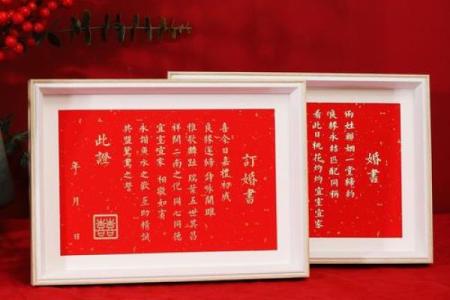 訂婚書
喜今日嘉禮初成
良緣遂締 詩咏關雎
雅歌麟趾 瑞葉五世其昌
祥開二南之化 同心同德
宜室宜家 相敬如賓
永諧魚水之歡 互助精誠
共盟鴛鴦之誓
此證
年 月 日
囍
婚書
兩姓聯姻一堂締約
良緣永結匹配同稱
看此日桃花灼灼宜室宜家